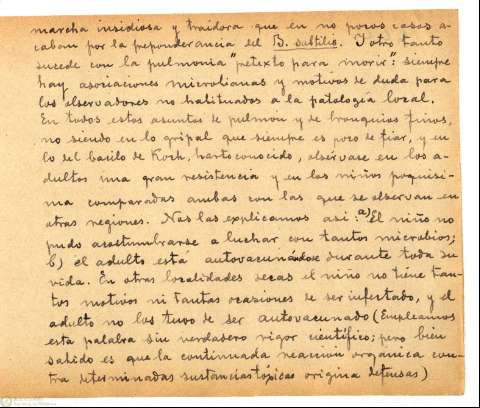 marcha insidiosa y traidora que en no pocos casos a-
caban por la preponderancia del B. subtilis. Y otro tanto
sucede con la pulmonía "pretexto para morir": siempre
hay asociaciones microbianas y motivos de duda para
los observadores no habituados a la patología local.
En todos estos asuntos de pulmón y de bronquios finos,
no siendo en lo gripal que siempre es poco de fiar, y en
lo del bacilo de Koch, harto conocido, obsérvase en los a-
dultos una gran resistencia y en los niños poquísi-
ma comparadas ambas con las que se observan en
otras regiones. Nos las explicamos así: a) El niño no
pudo acostumbrarse a luchar con tantos microbios;
b) el adulto está autovacunándose durante toda su
vida. En otras localidades secas el niño no tiene tan-
tos motivos ni tantas ocasiones de ser infectado, y el
adulto no los tuvo de ser autovacunado (Empleamos
esta palabra sin verdadero rigor científico; pero bien
sabido es que la continuada reacción orgánica con-
tra determinadas sustancias tóxicas origina defensas)